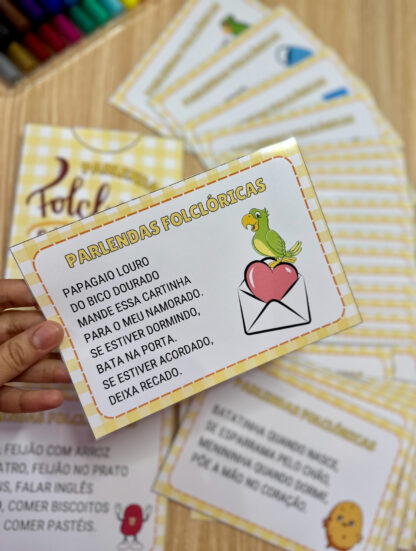 FOLCLÓRICAS
PARLENDA
Folcl
PARLENDAS FOLCLÓRICAS
PAPAGAIO LOURO
DO BICO DOURADO
MANDE ESSA CARTINHA
PARA O MEU NAMORADO.
SE ESTIVER DORMINDO,
BATA NA PORTA.
SE ESTIVER ACORDADO,
DEIXA RECADO.
, FEIJÃO COM ARROZ
ATRO, FEIJÃO NO PRATO
NS, FALAR INGLÊS
COMER BISCOITOS
COMER PASTÉIS.
PARLENDAS FOLCLÓRICAS
BATATINHA QUANDO NASCE,
SE ESPARRAMA PELO CHÃO,
MENININHA QUANDO DORME,
PÕE A MÃO NO CORAÇÃO.